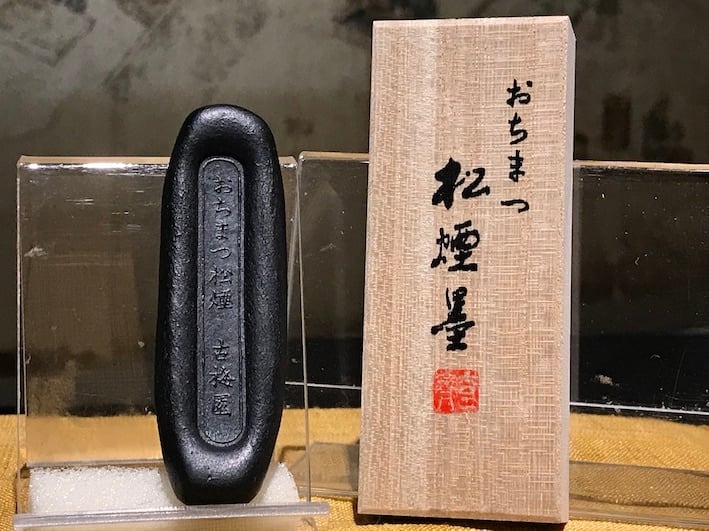 おちまつ松煙 古梅園
おちまつ
松煙墨